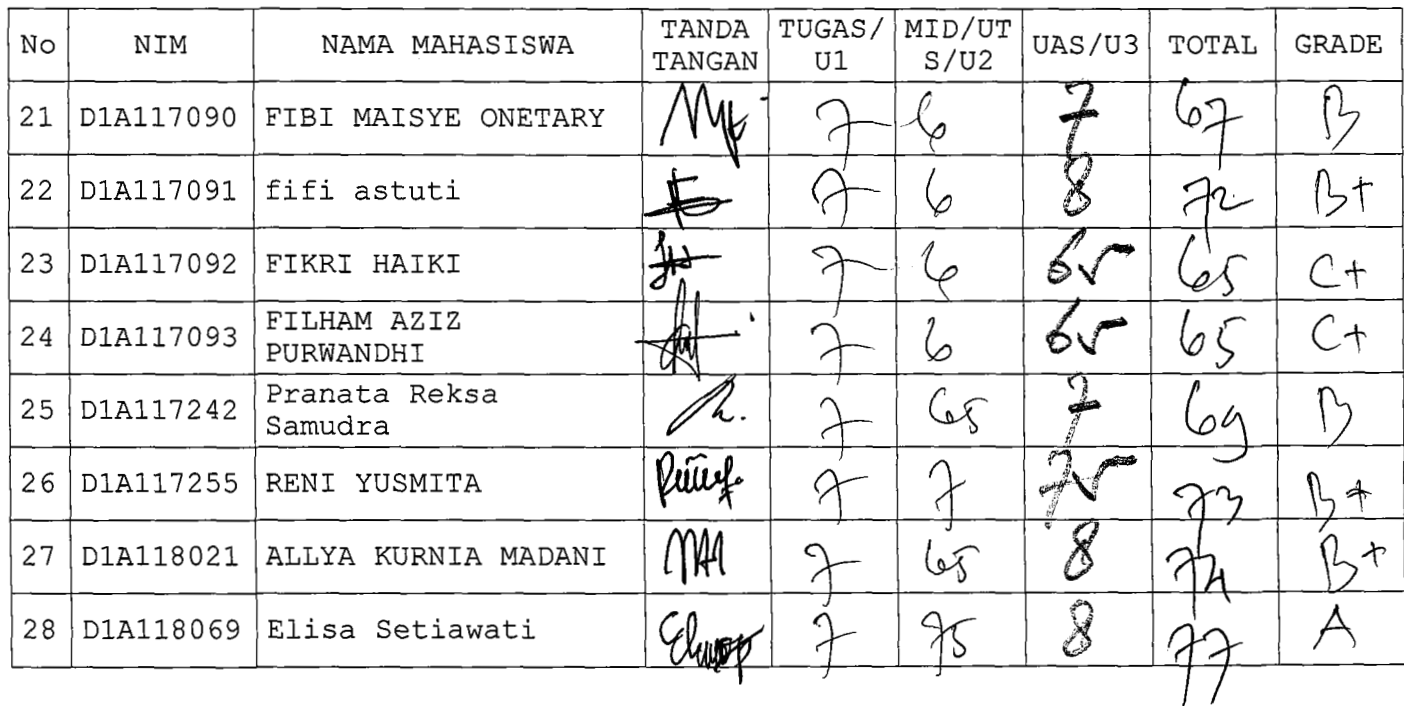 No NIM NAMA MAHASISWA TANDA TANGAN TUGAS/U1 MID/UTS/U2 UAS/U3 TOTAL GRADE
21 D1A117090 FIBI MAISYE ONETARY 7 6 7 67 B
22 D1A117091 fifi astuti 7 6 8 72 B+
23 D1A117092 FIKRI HAIKI 7 6 65 65 C+
24 D1A117093 FILHAM AZIZ PURWANDHI 7 6 65 65 C+
25 D1A117242 Pranata Reksa Samudra 7 65 7 69 B
26 D1A117255 RENI YUSMITA 7 7 75 73 B+
27 D1A118021 ALLYA KURNIA MADANI 7 65 8 74 B+
28 D1A118069 Elisa Setiawati 7 75 8 77 A